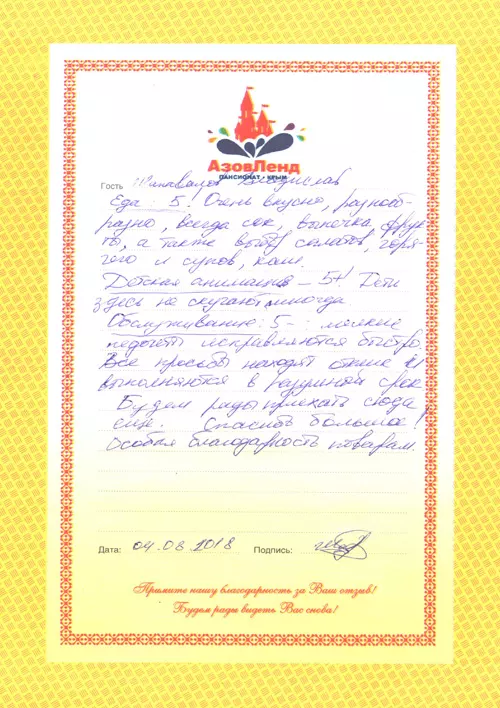 АзовЛенд
ПАНСИОНАТ • КРЫМ
Гость Владислав
Еда: 5! Очень вкусно, разнооб-
разно, всегда сок, выпечка, фрук-
ты, а также выбор салатов, горя-
чего и супов, каш.
Детская анимация – 5+! Дети
здесь не скучают никогда
Обслуживание: 5- : мелкие
недочеты исправляются быстро.
Все просьбы находят отклик и
выполняются в разумный срок
Будем рады приехать сюда
еще. Спасибо большое!
Особая благодарность поварам.
Дата: 04.08.2018 Подпись:
Примите нашу благодарность за Ваш отзыв!
Будем рады видеть Вас снова!